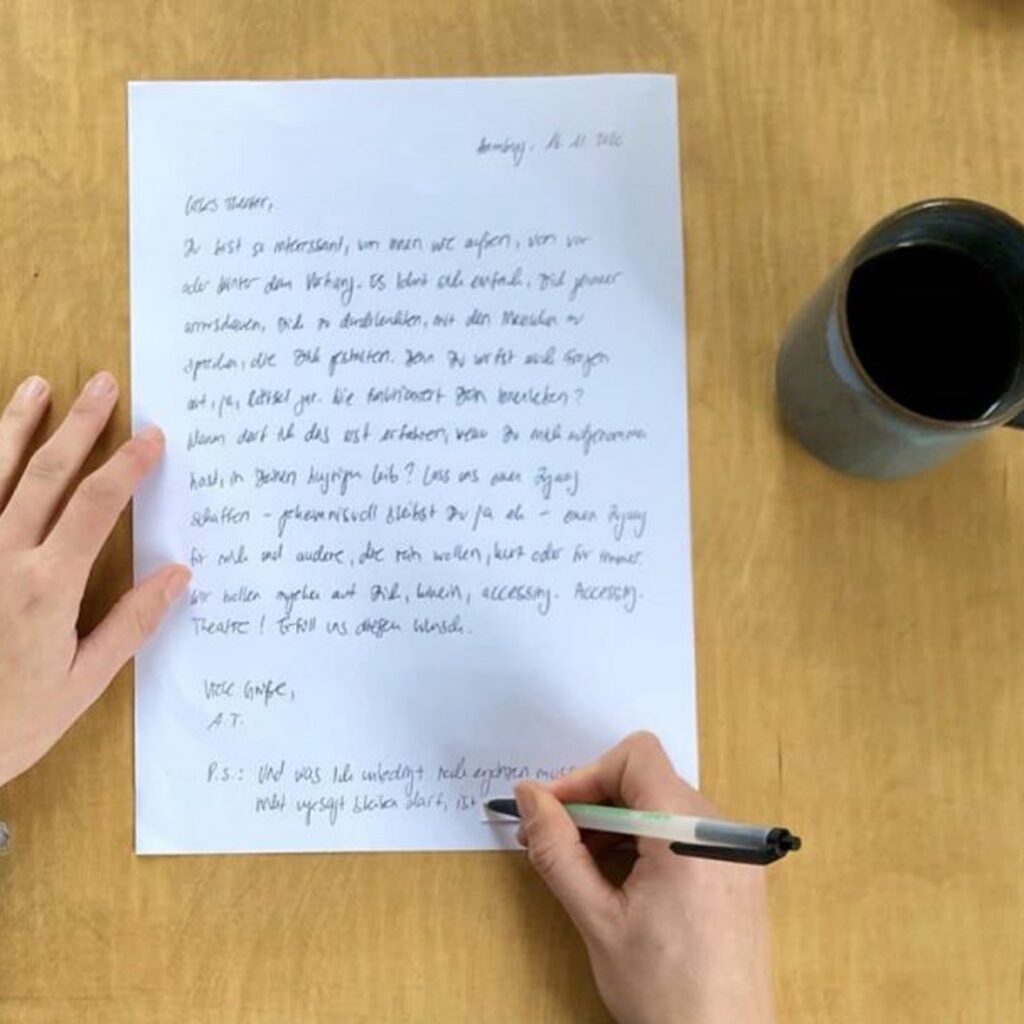 Hamburg, 16.11.2020
Liebes Theater,
Du bist so interessant, von innen wie außen, von vor
oder hinter dem Vorhang. Es lohnt sich einfach, Dich genauer
anzuschauen, Dich zu durchleuchten, mit den Menschen zu
sprechen, die Dich gestalten. Denn Du wirfst auch Fragen
auf, ja, Rätsel gar. Wie funktioniert Dein Innenleben?
Wann darf ich das erst erfahren, wenn Du mich aufgenommen
hast, in Deinen hungrigen Leib? Lass uns einen Zugang
schaffen – geheimnisvoll bleibst Du ja eh – einen Zugang
für mich und andere, die rein wollen, kurz oder für immer.
Wir wollen zugehen auf Dich, hinein, accessing. Accessing.
Theatre! Erfüll uns diesen Wunsch.
Viele Grüße,
A.T.
P.S.: Und was ich unbedingt noch ergänzen muss
nicht ungesagt bleiben darf, ist